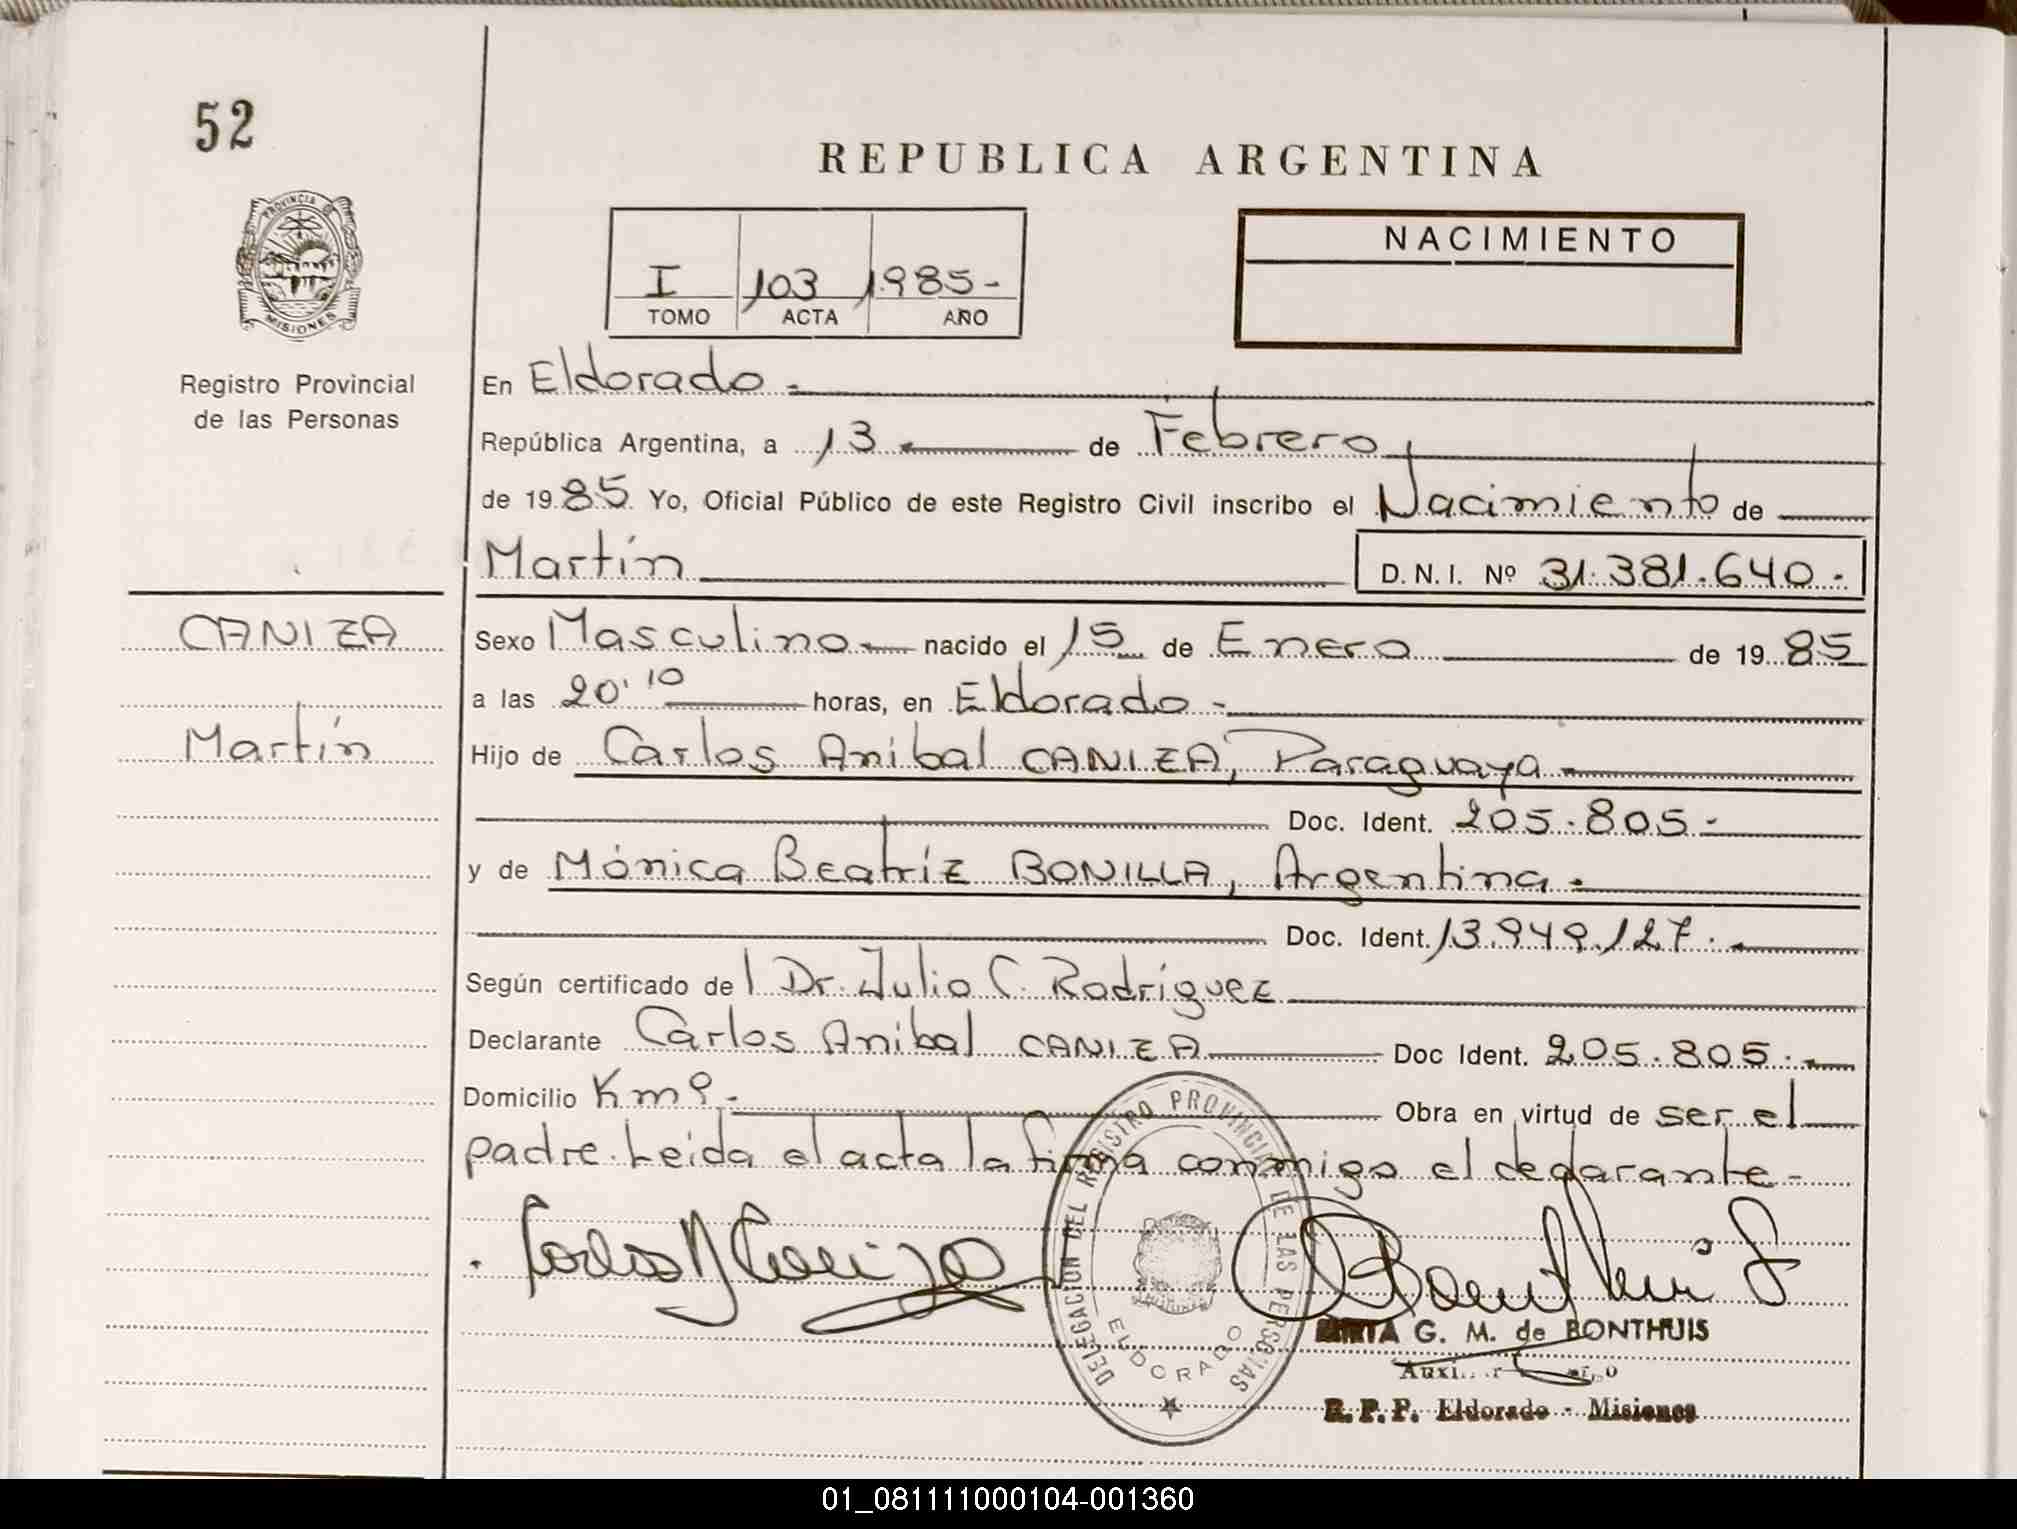 52
REPUBLICA ARGENTINA
PROVINCIA DE
MISIONES
I 103 1985-
TOMO ACTA AÑO
NACIMIENTO
Registro Provincial
de las Personas
En Eldorado.-
República Argentina, a 13 de Febrero
de 1985. Yo, Oficial Público de este Registro Civil inscribo el Nacimiento de
Martín D. N. I. Nº 31.381.640.-
CANIZA
Martín
Sexo Masculino nacido el 15 de Enero de 1985
a las 20'10 horas, en Eldorado.-
Hijo de Carlos Anibal CANIZA, Paraguaya.-
Doc. Ident. 205.805.-
y de Mónica Beatríz BONILLA, Argentina.-
Doc. Ident. 13.949.127.-
Según certificado del Dr. Julio C. Rodríguez
Declarante Carlos Anibal CANIZA Doc Ident. 205.805.-
Domicilio Km 9.- Obra en virtud de ser el
padre. Leida el acta la firma conmigo el declarante-
DELEGACION DEL REGISTRO PROVINCIAL DE LAS PERSONAS
ELDORADO
G. M. de BONTHUIS
R. P. P. Eldorado - Misiones
01_081111000104-001360